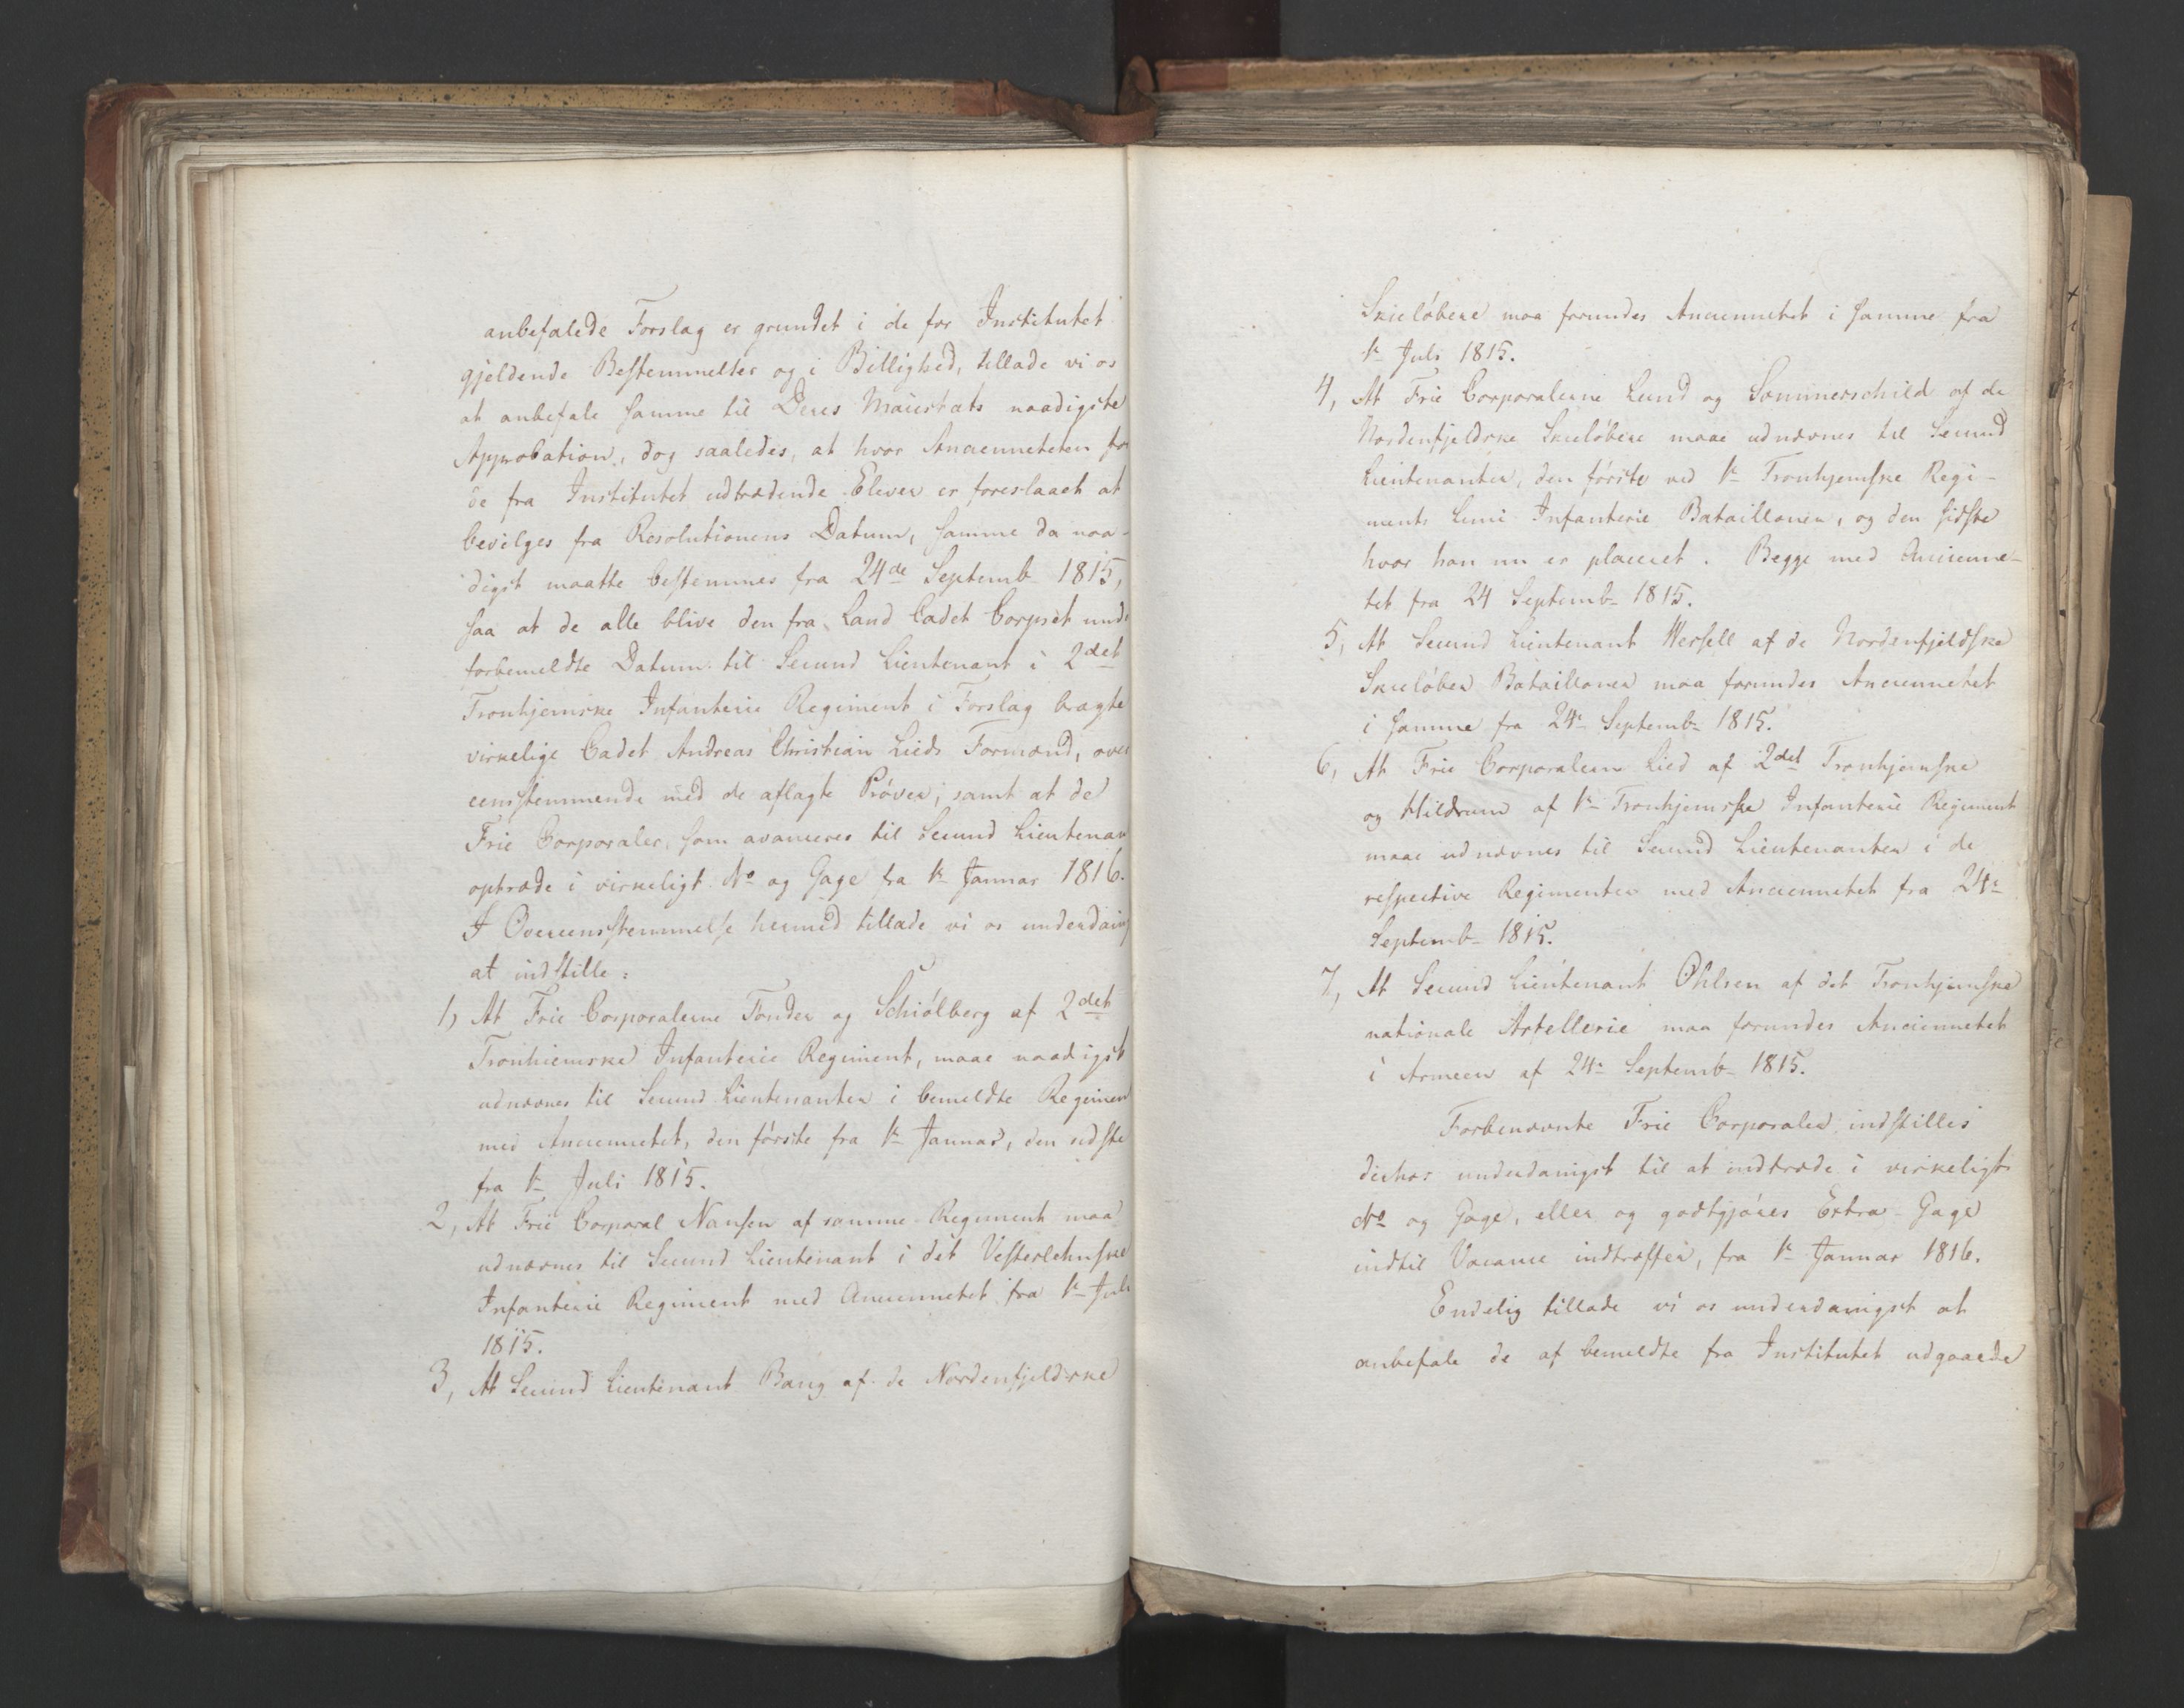 anbefalede Forslag er grundet i de for Institutet
gjeldende Bestemmelser og i Billighed, tillade vi os
at anbefale samme til Deres Maiestæts naadigste
Approbation, dog saaledes, at hvor Ancienneteten for
de fra Institutet udtrædende Elever er foreslaaet at
bevilges fra Resolutionens Datum, samme da naa-
digst maatte bestemmes fra 24de Septemb 1815,
saa at de alle blive den fra Land Cadet Corpset und
forbemeldte Datum til Secund Lieutenant i 2det
Tronhjemske Infanterie Regiment i Forslag bragte
virkelige Cadet Andreas Christian Lieds Formænd, over
eensstemmende med de aflagte Pröver, samt at de
Frie Corporaler, som avancerer til Secund Lieutenan
optræde i virkeligt No og Gage fra 1e Januar 1816.
I Overeensstemmelse hermed tillade vi os underdanig
at indstille:
1, At Frie Corporalerne Tønder og Schiölberg af 2det
Tronhiemske Infanterie Regiment, maae naadigst
udnævnes til Secund Lieutenanter i bemeldte Regimen
med Anciennetet, den förste fra 1e Januar, den sidste
fra 1e Juli 1815.
2, At Frie Corporal Nansen af samme Regiment maa
udnævnes til Secund Lieutenant i det Vesterlehnske
Infanterie Regiment med Anciennetet fra 1e Juli
1815.
3, At Secund Lieutenant Bang af de Nordenfjeldske
Skielöbere maa forundes Anciennetet i samme fra
1e Juli 1815.
4, At Frie Corporalerne Lund og Sommerschild af de
Nordenfjeldske Skielöbere maae udnævnes til Secund
Lieutenanter, den förste ved 1e Tronhjemske Regi-
ments Linie Infanterie Batailloner, og den sidste
hvor han nu er placeret. Begge med Ancienne-
tet fra 24 Septemb 1815.
5, At Secund Lieutenant Wersell af de Nordenfjeldske
Skielöber Batailloner maa forundes Anciennetet
i samme fra 24e Septemb 1815.
6, At Frie Corporalerne Lied af 2det Tronhjemske
og Hildrum af 1e Tronhjemske Infanterie Regiment
maae udnævnes til Secund Lieutenanter i de
respective Regimenter med Anciennetet fra 24e
Septemb 1815.
7, At Secund Lieutenant Ohlsen af det Tronhjemske
nationale Artellerie maa forundes Anciennetet
i Armeen af 24e Septemb 1815.
Forbenævnte Frie Corporaler indstilles
derhos underdanigst til at indtræde i virkeligt
No og Gage, eller og godtgjöres Extra Gage
indtil Vacance indtræffer, fra 1e Januar 1816.
Endelig tillade vi os underdanigst at
anbefale de af bemeldte fra Institutet udgaaede